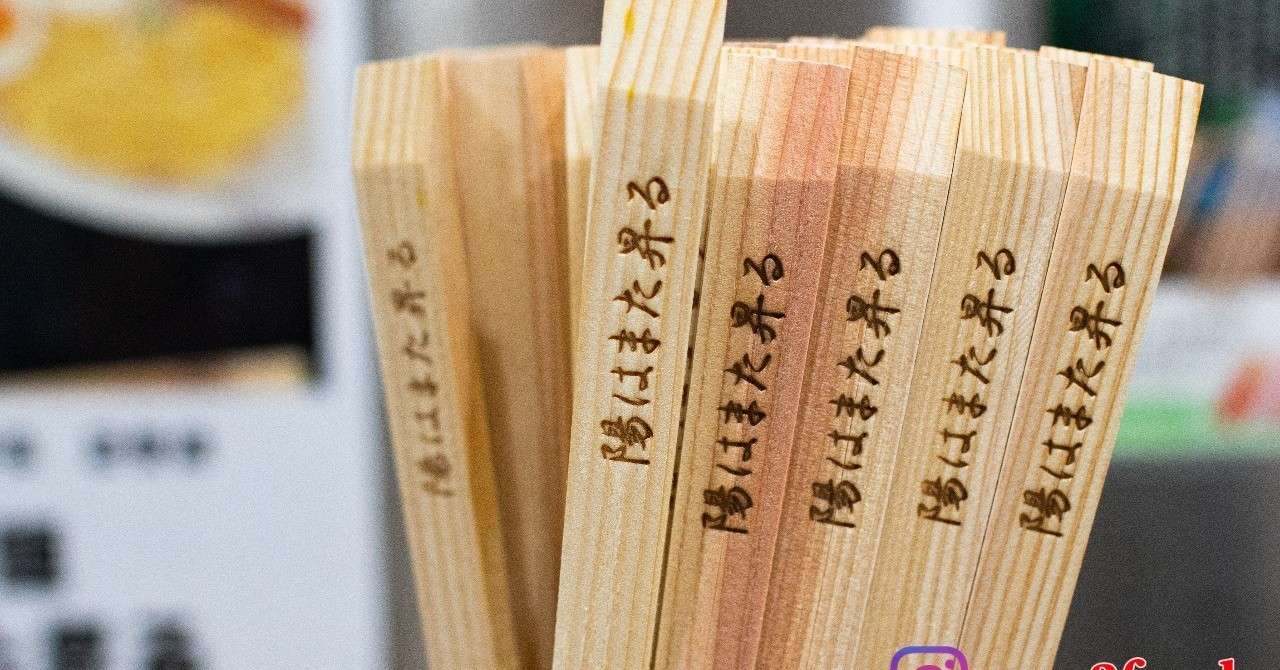 陽はまた昇る
陽はまた昇る
陽はまた昇る
陽はまた昇る
陽はまた昇る
陽はまた昇る